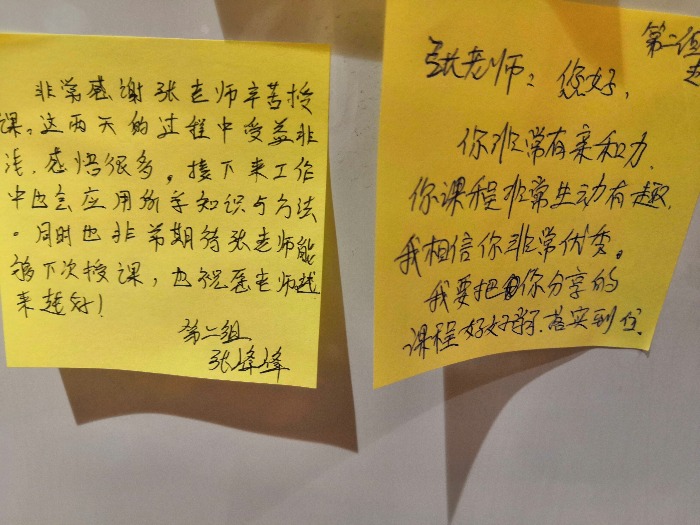 非常感谢张老师辛苦授
课。这两天的过程中受益非
浅，感悟很多。接下来工作
中也会应用所学知识与方法
。同时也非常期待张老师能
够下次授课，也祝愿老师越
来越好！
第二组
张峰峰
第二组
张老师：您好，
你非常有亲和力，
你课程非常生动有趣，
我相信你非常优秀。
我要把你分享的
课程好好学习，落实到位